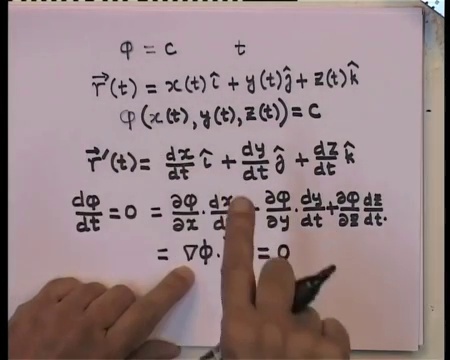 φ = c t
r⃗(t) = x(t) î + y(t) ĵ + z(t) k̂
φ(x(t), y(t), z(t)) = c
r⃗'(t) = dx/dt î + dy/dt ĵ + dz/dt k̂
dφ/dt = 0 = ∂φ/∂x · dx/ ∂φ/∂y · dy/dt + ∂φ/∂z dz/dt.
= ∇φ · = 0